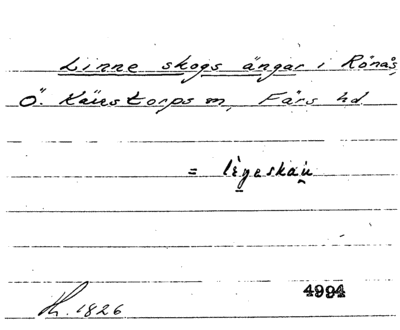 Linne skogs ängar i Rönås,
Ö. Kärstorps m, Färs hd
= lègeskáu
1826
4994